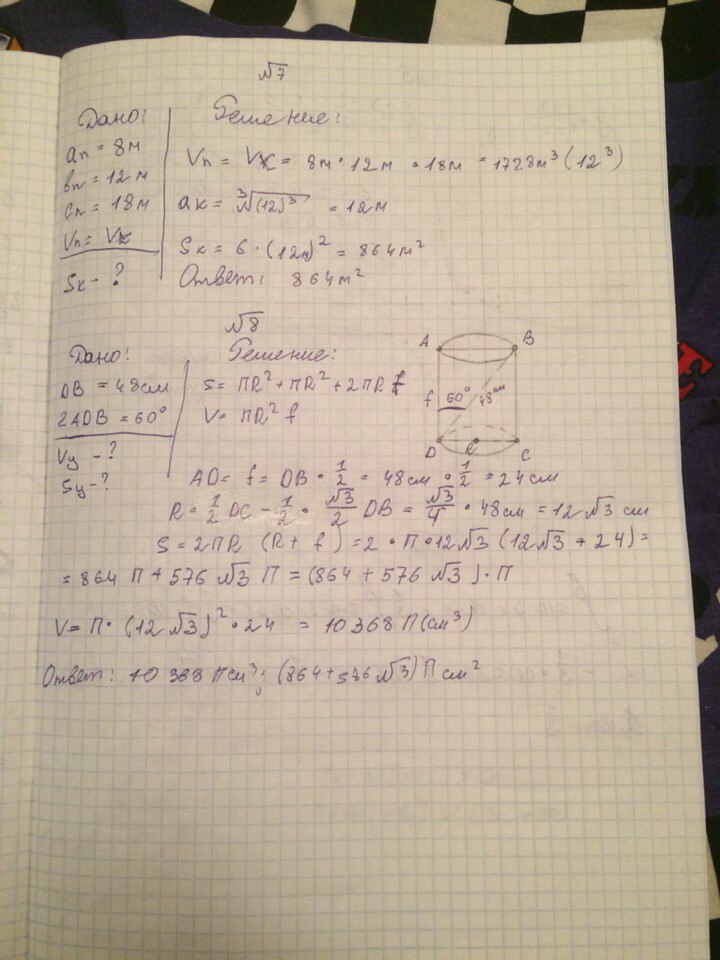 №7
Дано:
aп = 8м
bп = 12 м
cп = 18м
Vп = Vк
Sк - ?
Решение:
Vп = Vк = 8м · 12м · 18м = 1728м³ (12³)
aк = ∛(12)³ = 12м
Sк = 6 · (12м)² = 864м²
Ответ: 864м²
№8
Дано:
DB = 48см
∠ADB = 60°
Vц - ?
Sц - ?
Решение:
S = ПR² + ПR² + 2ПR f
V = ПR² f
A B
f 60° 48см
D R C
AD = f = DB · 1/2 = 48см · 1/2 = 24см
R = 1/2 DC = 1/2 · √3/2 DB = √3/4 · 48см = 12√3 см
S = 2ПR (R + f) = 2 · П · 12√3 (12√3 + 24) =
= 864 П + 576 √3 П = (864 + 576 √3) · П
V = П · (12√3)² · 24 = 10368 П(см³)
Ответ: 10 368 П см³; (864 + 576 √3) П см²